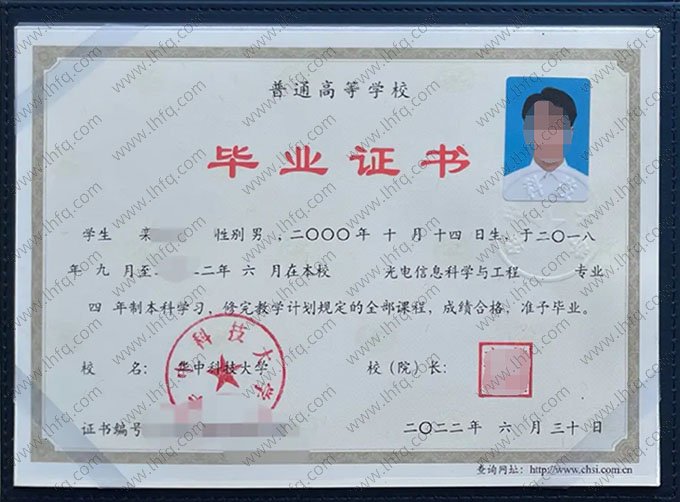 普通高等学校
毕业证书
学生 栾 性别 男，二〇〇〇年 十 月 十四 日生，于二〇一八
年 九 月至 二年 六 月在本校 光电信息科学与工程 专业
四 年制本科学习，修完教学计划规定的全部课程，成绩合格，准予毕业。
校 名：华中科技大学 校（院）长：
证书编号 二〇二二年 六 月 三十 日
查询网址：http://www.chsi.com.cn
www.lhfq.com